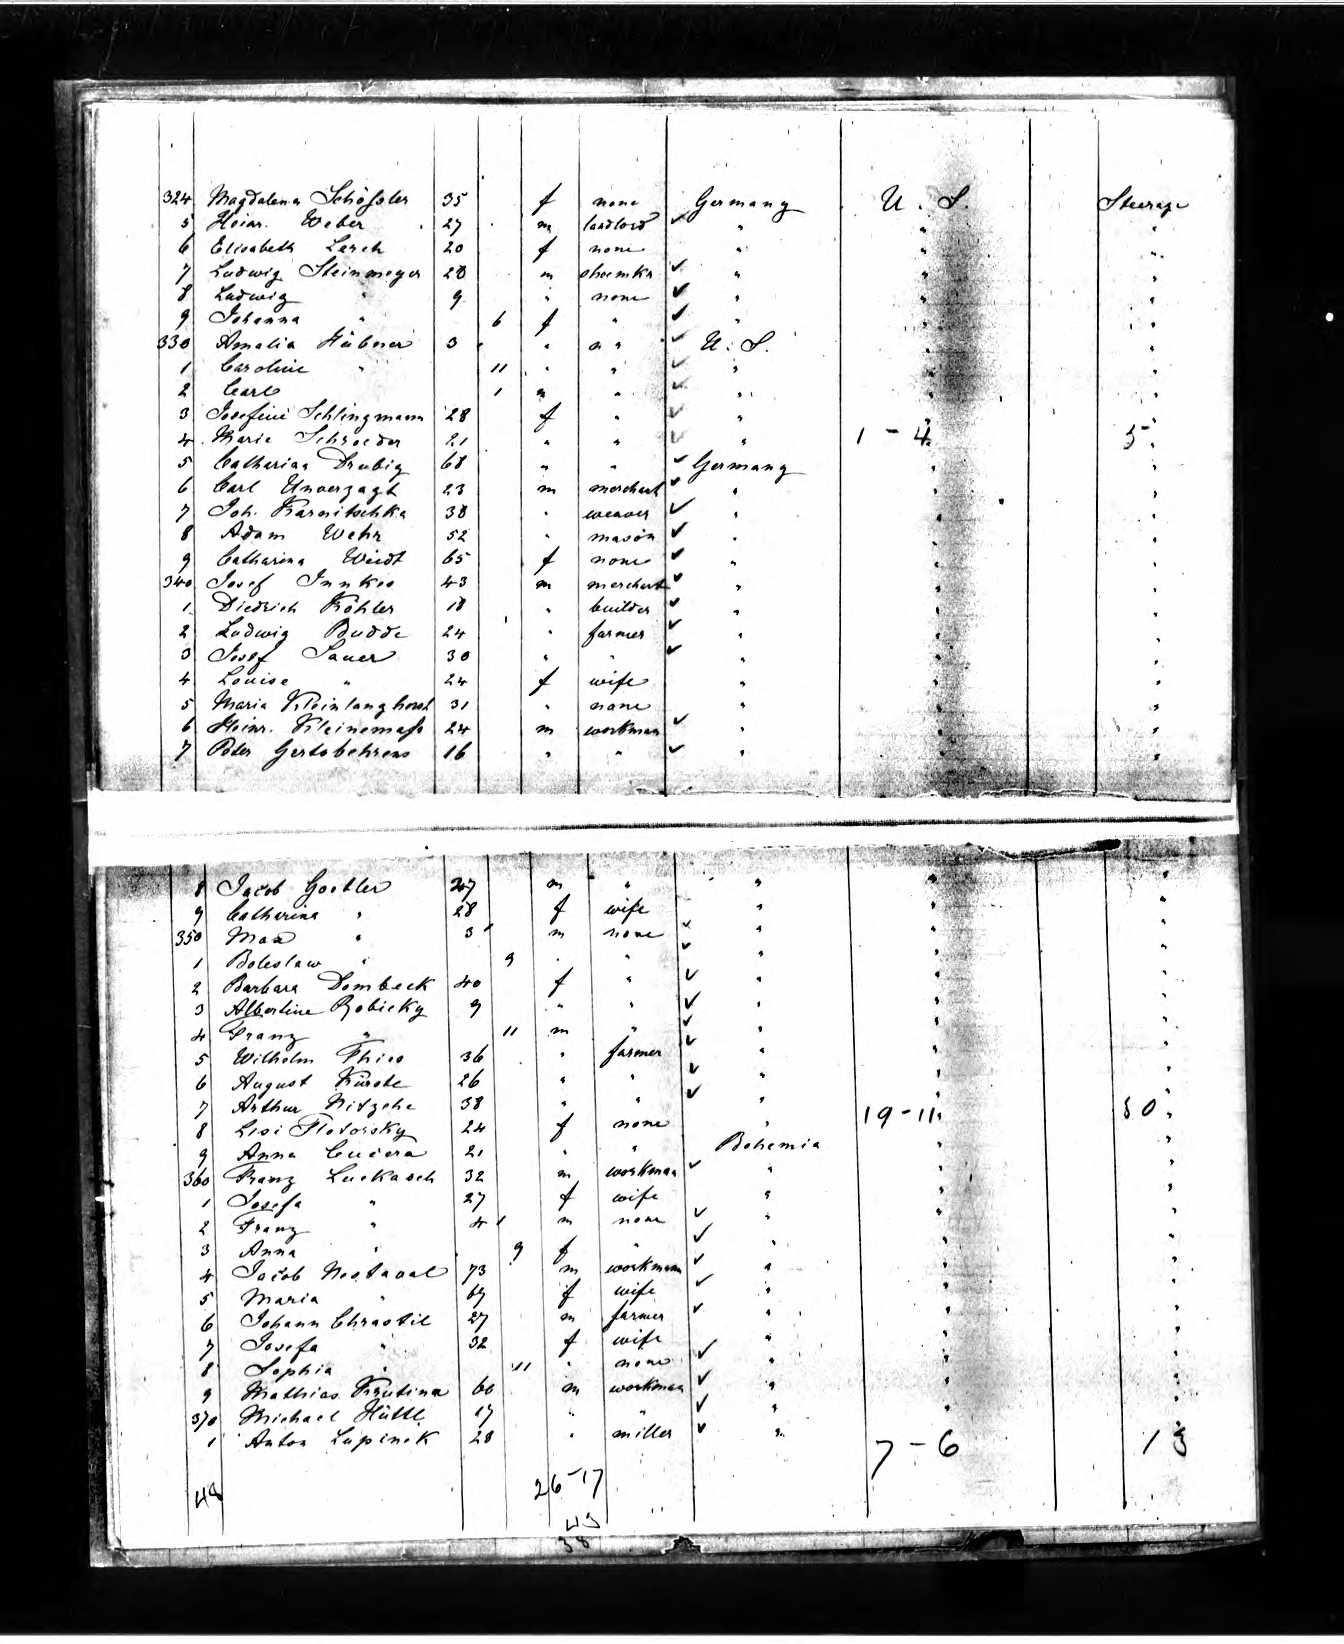 324 Magdalena Schössler 35 f none Germany U. S. Steerage
5 Heinr. Weber 27 m landlord ✓ " " "
6 Elisabeth Lerch 20 f none " " "
7 Ludwig Steinmeyer 28 m shoemkr ✓ " " "
8 Ludwig " 9 " none ✓ " " "
9 Johanna " 6 f " ✓ " " "
330 Amalia Hübner 3 " " " ✓ U. S. " "
1 Caroline " 11 " " ✓ " " "
2 Carl 1 m " ✓ " " "
3 Josefine Schlingmann 28 f " ✓ " " "
4 Marie Schroeder 21 " " ✓ " 1 - 4 " 5 "
5 Catharina Drubig 68 " " ✓ Germany " "
6 Carl Unverzagt 23 m merchant ✓ " " "
7 Joh. Karnitschka 38 " weaver ✓ " " "
8 Adam Wehr 52 " mason ✓ " " "
9 Catharina Weidt 65 f none ✓ " " "
340 Josef Junker 43 m merchant ✓ " " "
1 Diedrich Köhler 18 " builder ✓ " " "
2 Ludwig Budde 24 " farmer ✓ " " "
3 Josef Sauer 30 " " ✓ " " "
4 Louise " 24 f wife " " "
5 Maria Kleinlanghorst 31 " none " " "
6 Heinr. Kleinemass 24 m workman ✓ " " "
7 Peter Gertsbehrens 16 " " ✓ " " "
8 Jacob Goebler 27 m " " " "
9 Catharina " 28 f wife " " "
350 Max " 3 m none ✓ " " "
1 Boleslaw " 9 " " ✓ " " "
2 Barbara Dombeck 40 f " ✓ " " "
3 Albertine Robicky 9 " " ✓ " " "
4 Franz " 11 m " ✓ " " "
5 Wilhelm Thies 36 " farmer ✓ " " "
6 August Kürste 26 " " ✓ " " "
7 Arthur Nitzche 38 " " ✓ " 19 - 11 " 30 "
8 Lisi Flotorsky 24 f none " " "
9 Anna Cucera 21 " " Bohemia " "
360 Franz Luckasch 32 m workman ✓ " " "
1 Josefa " 27 f wife " " "
2 Franz " 4 m none ✓ " " "
3 Anna " 9 f " ✓ " " "
4 Jacob Nostaval 73 m workman ✓ " " "
5 Maria " 69 f wife ✓ " " "
6 Johann Chrastil 27 m farmer ✓ " " "
7 Josefa " 32 f wife " " "
8 Sophia " 11 " none ✓ " " "
9 Mathias Krutina 60 m workman ✓ " " "
370 Michael Hüttl 17 " " ✓ " " "
1 Anton Lapinek 28 " miller ✓ " 7 - 6 13
48 26 - 17
43
38